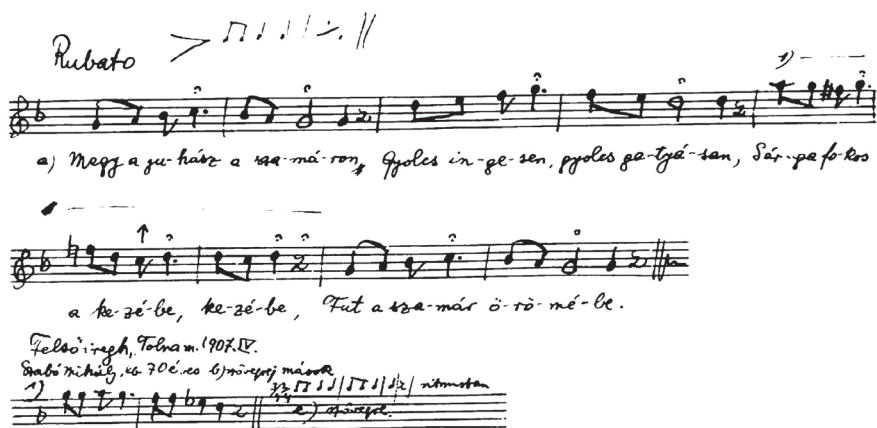 Rubato
1)
a) Megy a ju-hász a sza-má-ron, Gyolcs in-ge-sen, gyolcs ga-tyá-san, Sár-ga fo-kos
a ke-zé-be, ke-zé-be, Fut a sza-már ö-rö-mé-be.
Felsőiregh, Tolna m. 1907. IV.
Szabó Mihály, kb 70 é. és b) szövegej mások
1) ritmusban
szöveggel.